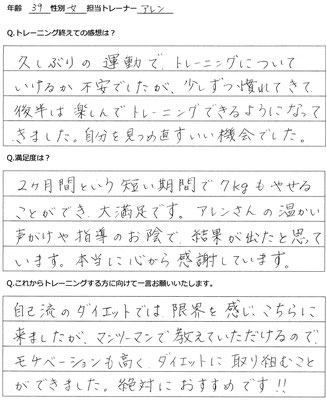 年齢 39 性別 女 担当トレーナー アレン
Q.トレーニング終えての感想は？
久しぶりの運動で、トレーニングについて
いけるか不安でしたが、少しずつ慣れてきて
後半は楽しんでトレーニングできるようになって
きました。自分を見つめ直すいい機会でした。
Q.満足度は？
2ヶ月間という短い期間で7kgもやせる
ことができ、大満足です。アレンさんの温かい
声がけや指導のお陰で、結果が出たと思って
います。本当に心から感謝しています。
Q.これからトレーニングする方に向けて一言お願いいたします。
自己流のダイエットでは限界を感じ、こちらに
来ましたが、マンツーマンで教えていただけるので、
モチベーションも高く、ダイエットに取り組むこと
ができました。絶対におすすめです!!